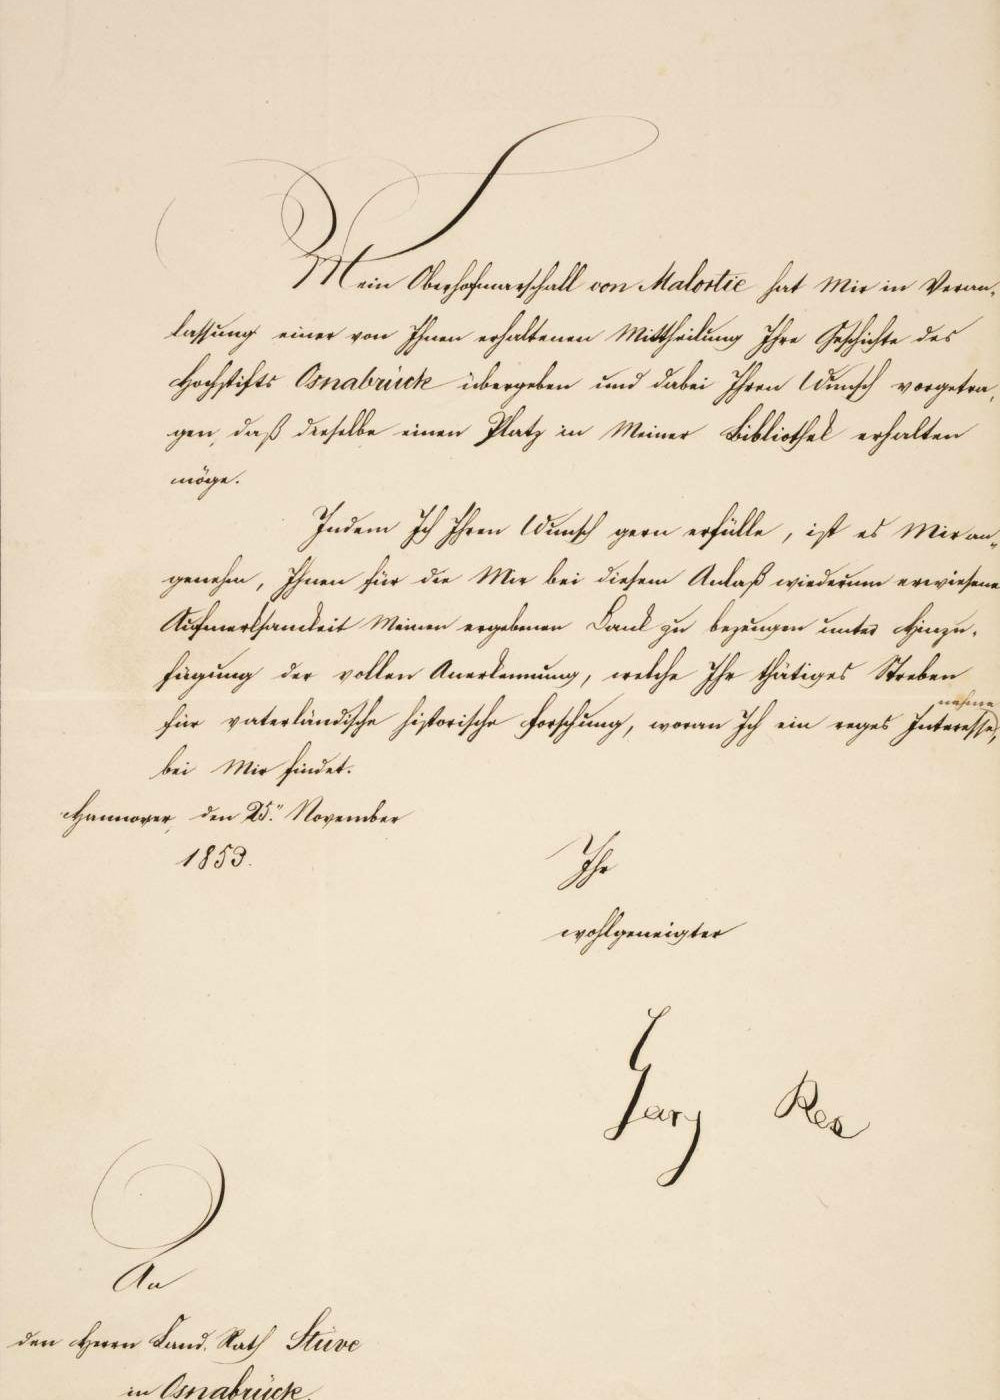 Mein Oberhofmarschall von Malortie hat Mir in Veran-
lassung einer von Ihnen erhaltenen Mittheilung Ihre Geschichte des
Hochstifts Osnabrück übergeben und dabei Ihren Wunsch vorgetra-
gen, daß dieselbe einen Platz in Meiner Bibliothek erhalten
möge.
Indem Ich Ihren Wunsch gern erfülle, ist es Mir an-
genehm, Ihnen für die Mir bei diesem Anlaß wiederum erwiesene
Aufmerksamkeit Meinen ergebenen Dank zu bezeugen unter Hinzu-
fügung der vollen Anerkennung, welche Ihr thätiges Streben
nehme
für vaterländische historische Forschung, woran Ich ein reges Interesse,
bei Mir findet.
Hannover, den 25. November
1853.
Ihr
wohlgeneigter
Georg Rex
An
den Herrn Land. Rath Stüve
in Osnabrück.